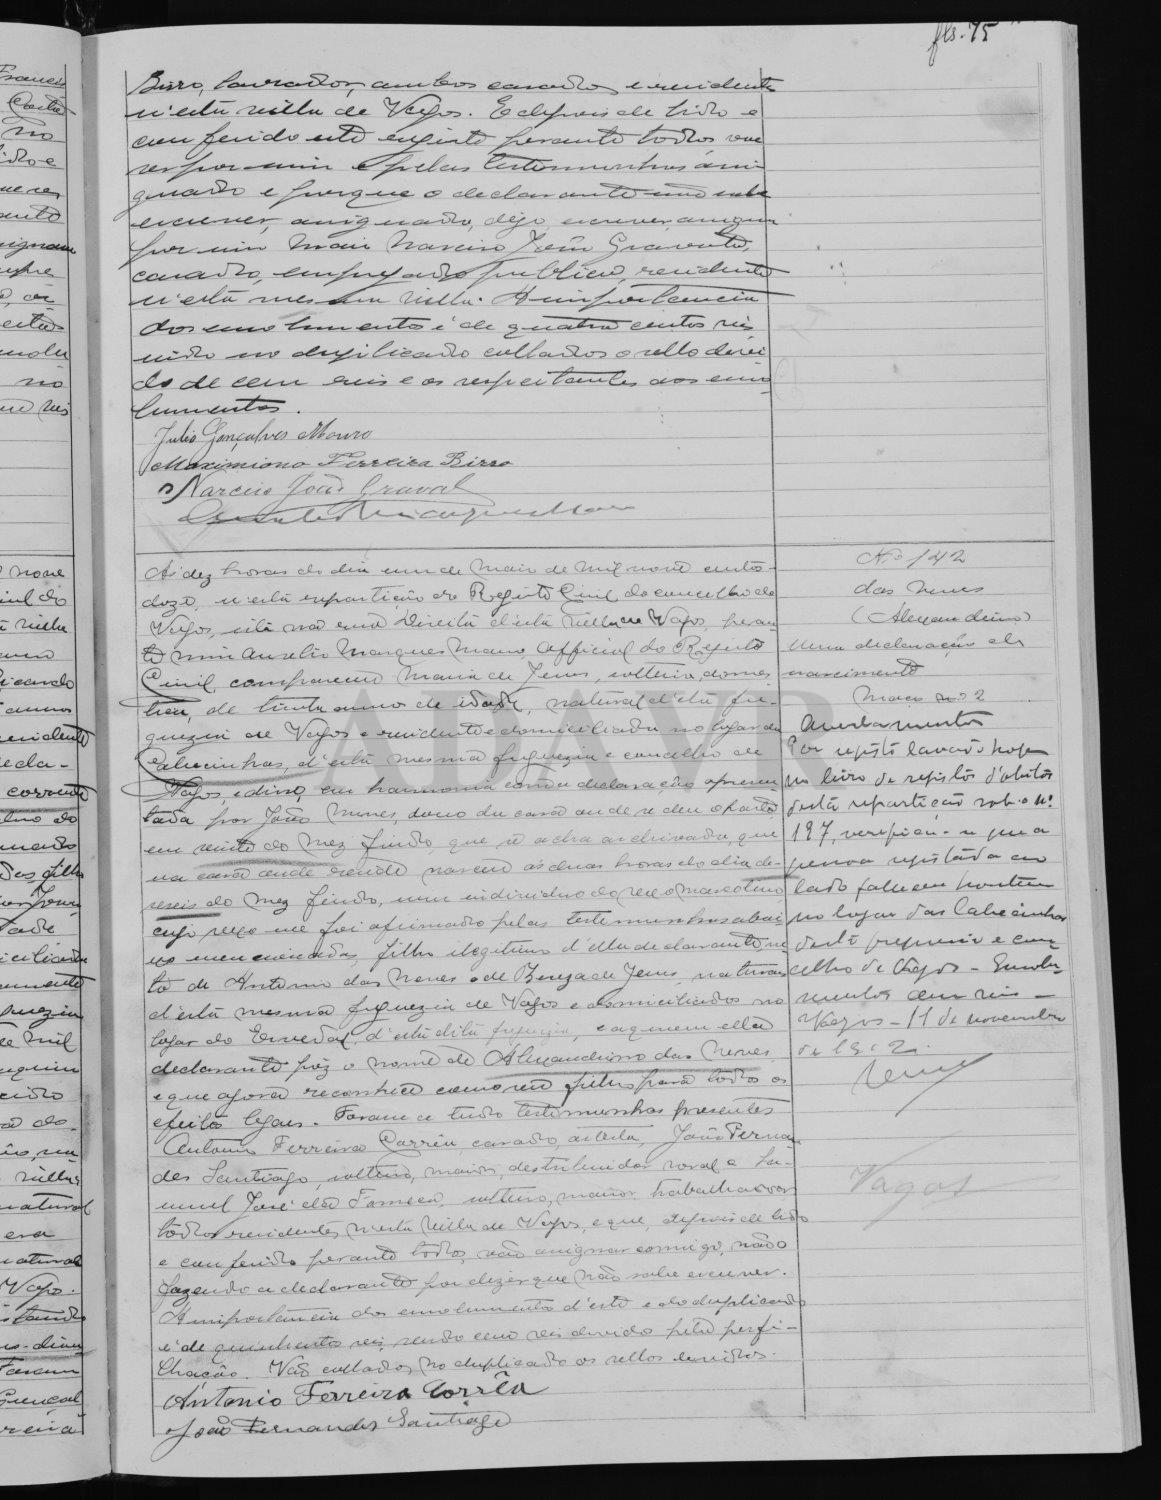 fls. 75
Birro, lavrador, ambos casados e residentes
n'esta villa de Vagos. E depois de lido e
conferido este registo perante todos vae
ser por mim e pelas testemunhas assi-
gnado e porque o declarante não sabe
escrever, assignado, digo, escrever, assigna
por mim Narciso João Gravato,
casado, empregado publico, residente
n'esta mesma villa. A importancia
dos emolumentos é de quatro centos reis
indo no duplicado collados o sello devi-
do de cem reis e os respeitantes aos emo-
lumentos.
Julio Gonçalves Mouro
Maximiano Ferreira Birro
Narciso João Gravato
Ás dez horas do dia um de Maio de mil nove centos
doze, n'esta repartição do Registo Civil do concelho de
Vagos, sita na rua Direita d'esta villa de Vagos, peran-
te mim Aurelio Marques Mano, Official do Registo
Civil, compareceu Maria de Jesus, solteira, domes-
tica, de trinta annos de idade, natural d'esta fre-
guezia de Vagos e residente e domiciliada no logar das
Cabecinhas, d'esta mesma freguezia e concelho de
Vagos, e disse, em harmonia com a declaração apresen-
tada por João Nunes, dono da casa onde se deu o parto
em vinte do mez findo, que se acha archivada, que
na casa onde reside nasceu ás duas horas do dia de-
seseis do mez findo, um individuo do sexo masculino,
cujo sexo me foi afirmado pelas testemunhas abai-
xo mencionadas, filho ilegitimo d'ella declarante ne-
to de Antonio das Neves e de Thereza de Jesus, naturaes
d'esta mesma freguezia de Vagos e domiciliados no
logar do d'esta dita freguezia, e a quem ella
declarante poz o nome de Alexandrino das Neves
e que agora reconhece como seu filho para todos os
efeitos legaes. Foram a tudo testemunhas presentes
Antonio Ferreira Corrêa, casado, artista, João Fernan-
des Santiago, solteiro, maior, destribuidor rural e Sa-
muel José da Fonseca, solteiro, maior, trabalhador
todos residentes n'esta villa de Vagos, e que, depois de lido
e conferido perante todos, vão assignar comigo, não o
fazendo a declarante por dizer que não sabe escrever.
A importancia dos emolumentos d'este e do duplicado
é de quinhentos reis, sendo cem reis devido pela perfi-
lhação. Vão collados no duplicado os sellos devidos.
Antonio Ferreira Corrêa
João Fernandes Santiago
Nº 142
das Neves
(Alexandrino)
Uma declaração de
nascimento
Maço nº 2
Averbamentos
Por registo lavrado hoje
no livro de registos d'obitos
desta repartição sob o nº
197, verifica-se que a
pessoa registada ao
lado faleceu hontem
no logar das Cabecinhas
desta freguezia e con-
celho de Vagos - Emolu-
mentos cem reis -
Vagos - 11 de novembro
de 1912.
Vagos
ADAVR